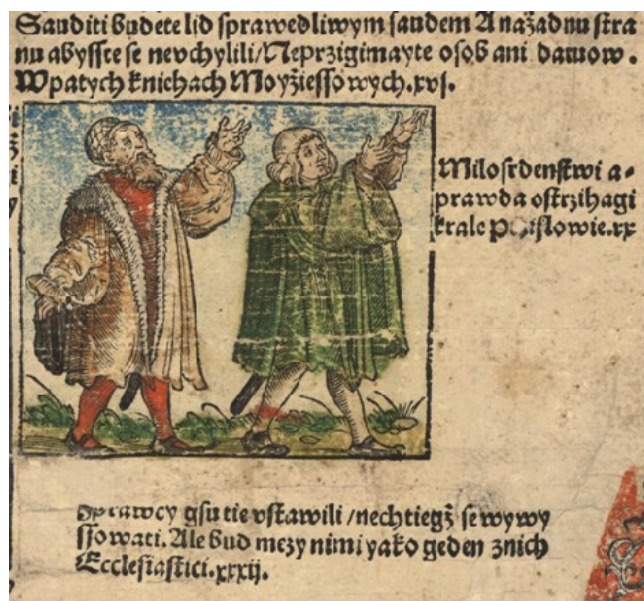 Sauditi budete lid sprawedliwym saudem A nažadnu stra
nu abysste se nevchylili/Neprzigimayte osob ani daruow.
Wpatych knichach Moyžiessowych.xvj.
Milosrdenstwi a-
prawda ostrzihagi
krale Przislowie.xx
Sprawcy gsu tie vstawili/nechtiegž se wywy
ssowati. Ale bud mezy nimi yako geden znich
Ecclesiastici.xxxij.